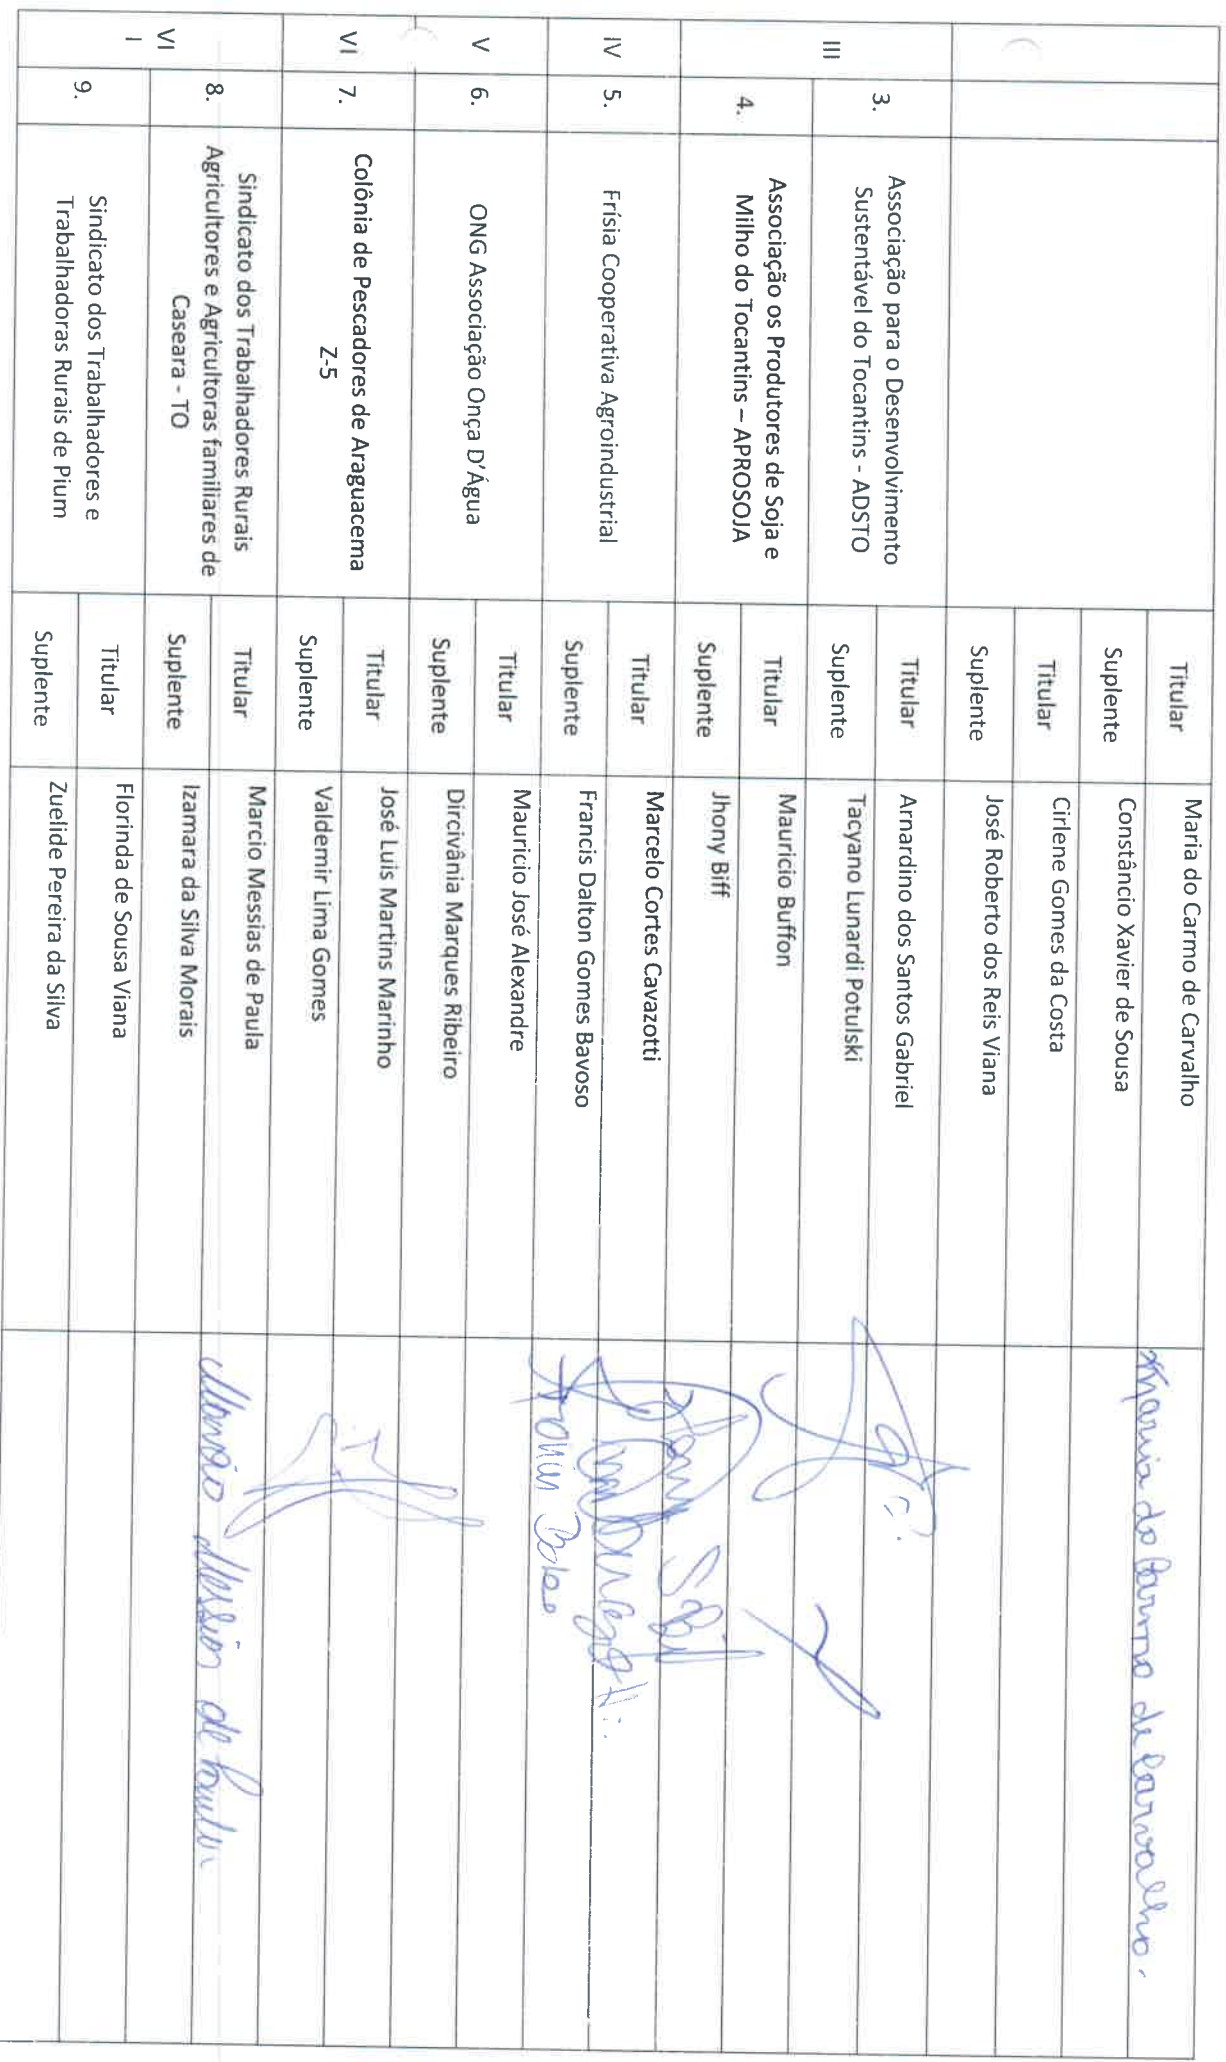 Titular Maria do Carmo de Carvalho Maria do Carmo de Carvalho.
Suplente Constâncio Xavier de Sousa
Titular Cirlene Gomes da Costa
Suplente José Roberto dos Reis Viana
III
3.
Associação para o Desenvolvimento
Sustentável do Tocantins - ADSTO
Titular Arnardino dos Santos Gabriel
Suplente Tacyano Lunardi Potulski
4.
Associação os Produtores de Soja e
Milho do Tocantins – APROSOJA
Titular Mauricio Buffon
Suplente Jhony Biff
IV
5.
Frísia Cooperativa Agroindustrial
Titular Marcelo Cortes Cavazotti
Suplente Francis Dalton Gomes Bavoso
V
6.
ONG Associação Onça D'Água
Titular Mauricio José Alexandre
Suplente Dircivânia Marques Ribeiro
VI
7.
Colônia de Pescadores de Araguacema
Z-5
Titular José Luis Martins Marinho
Suplente Valdemir Lima Gomes
VI
I
8.
Sindicato dos Trabalhadores Rurais
Agricultores e Agricultoras familiares de
Caseara - TO
Titular Marcio Messias de Paula Marcio Messias de Paula
Suplente Izamara da Silva Morais
9.
Sindicato dos Trabalhadores e
Trabalhadoras Rurais de Pium
Titular Florinda de Sousa Viana
Suplente Zuelide Pereira da Silva